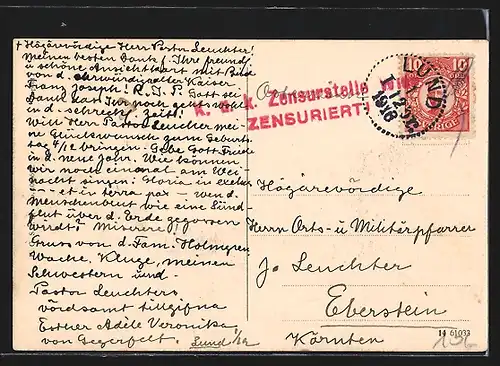 + Högärwürdige Herr Pastor Leuchter!
Meinen besten Dank f. Ihre freund-
u schöne Ansichtkart mit Bild
von d. ehrwürdig Kaiser
Franz Joseph! R. I. P. Gott sei
Dank das Ihr noch geht wohl
in d. schreckl. Zeit!
Will Herr Pastor Leuchter mei-
ne Glückwünsche zum Geburts-
tag 4/12 bringen. Gebe Gott Friede
in d. neue Jahr. Wie können
wir noch einmal am Wei-
nacht singen: Gloria in excelsis
et in terra pax — wen d.
Menschenblut wie eine Sünd-
flut über d. Erde gegossen
wird! Miserere!
Gruss von d. Fam. Holmgren,
Wache, Kluge, meinen
Schwestern und
Pastor Leuchters
vördsamt tillgifna
Esther Adèle Veronika
von Segerfelt. Lund 1/12
K. u. k. Zensurstelle
ZENSURIERT!
10 10
LUND
1916
Högärevördige
Herrn Orts- u Militärpfarrer
Jo Leuchter
Eberstein
Kärnten
14 61033